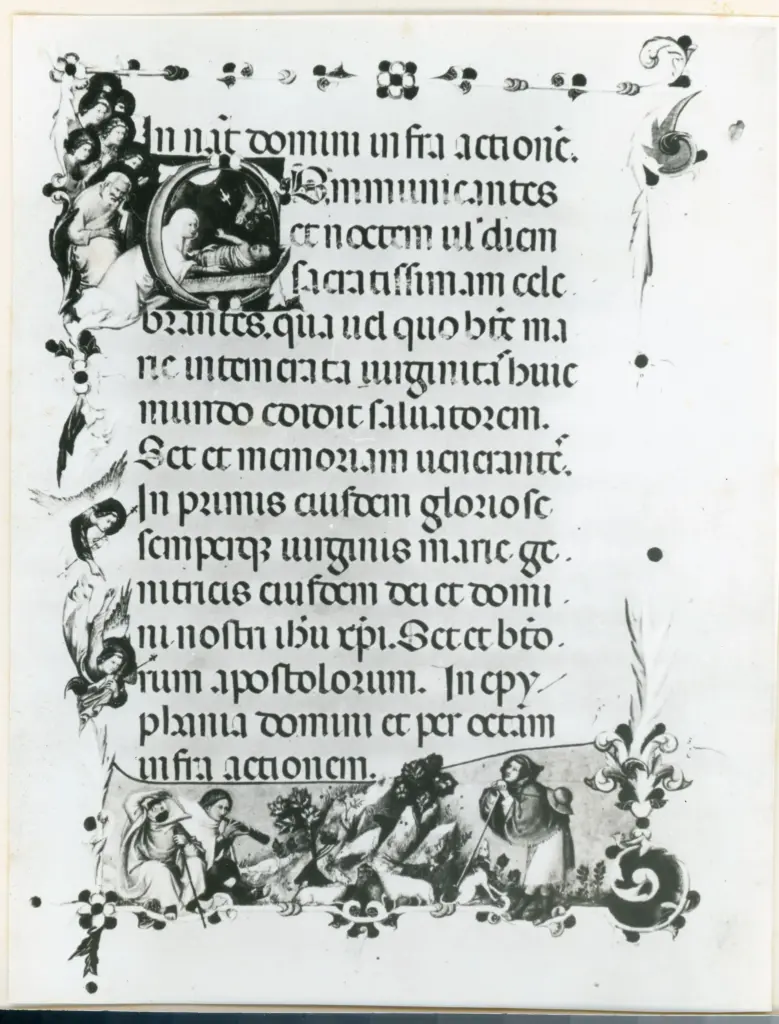 In nat̄ domini infra actionē.
Communicantes
et noctem ul' diem
sacratissimam cele
brantes. qua uel quo btē ma
rie intemerata uirginitas huic
mundo edidit saluatorem.
Set et memoriam uenerantē.
In primis eiusdem gloriose
semperq; uirginis marie ge.
nitricis eiusdem dei et domi.
ni nostri ihū xp̄i. Set et btō.
rum apostolorum. In epy
phania domini et per octām
infra actionem.